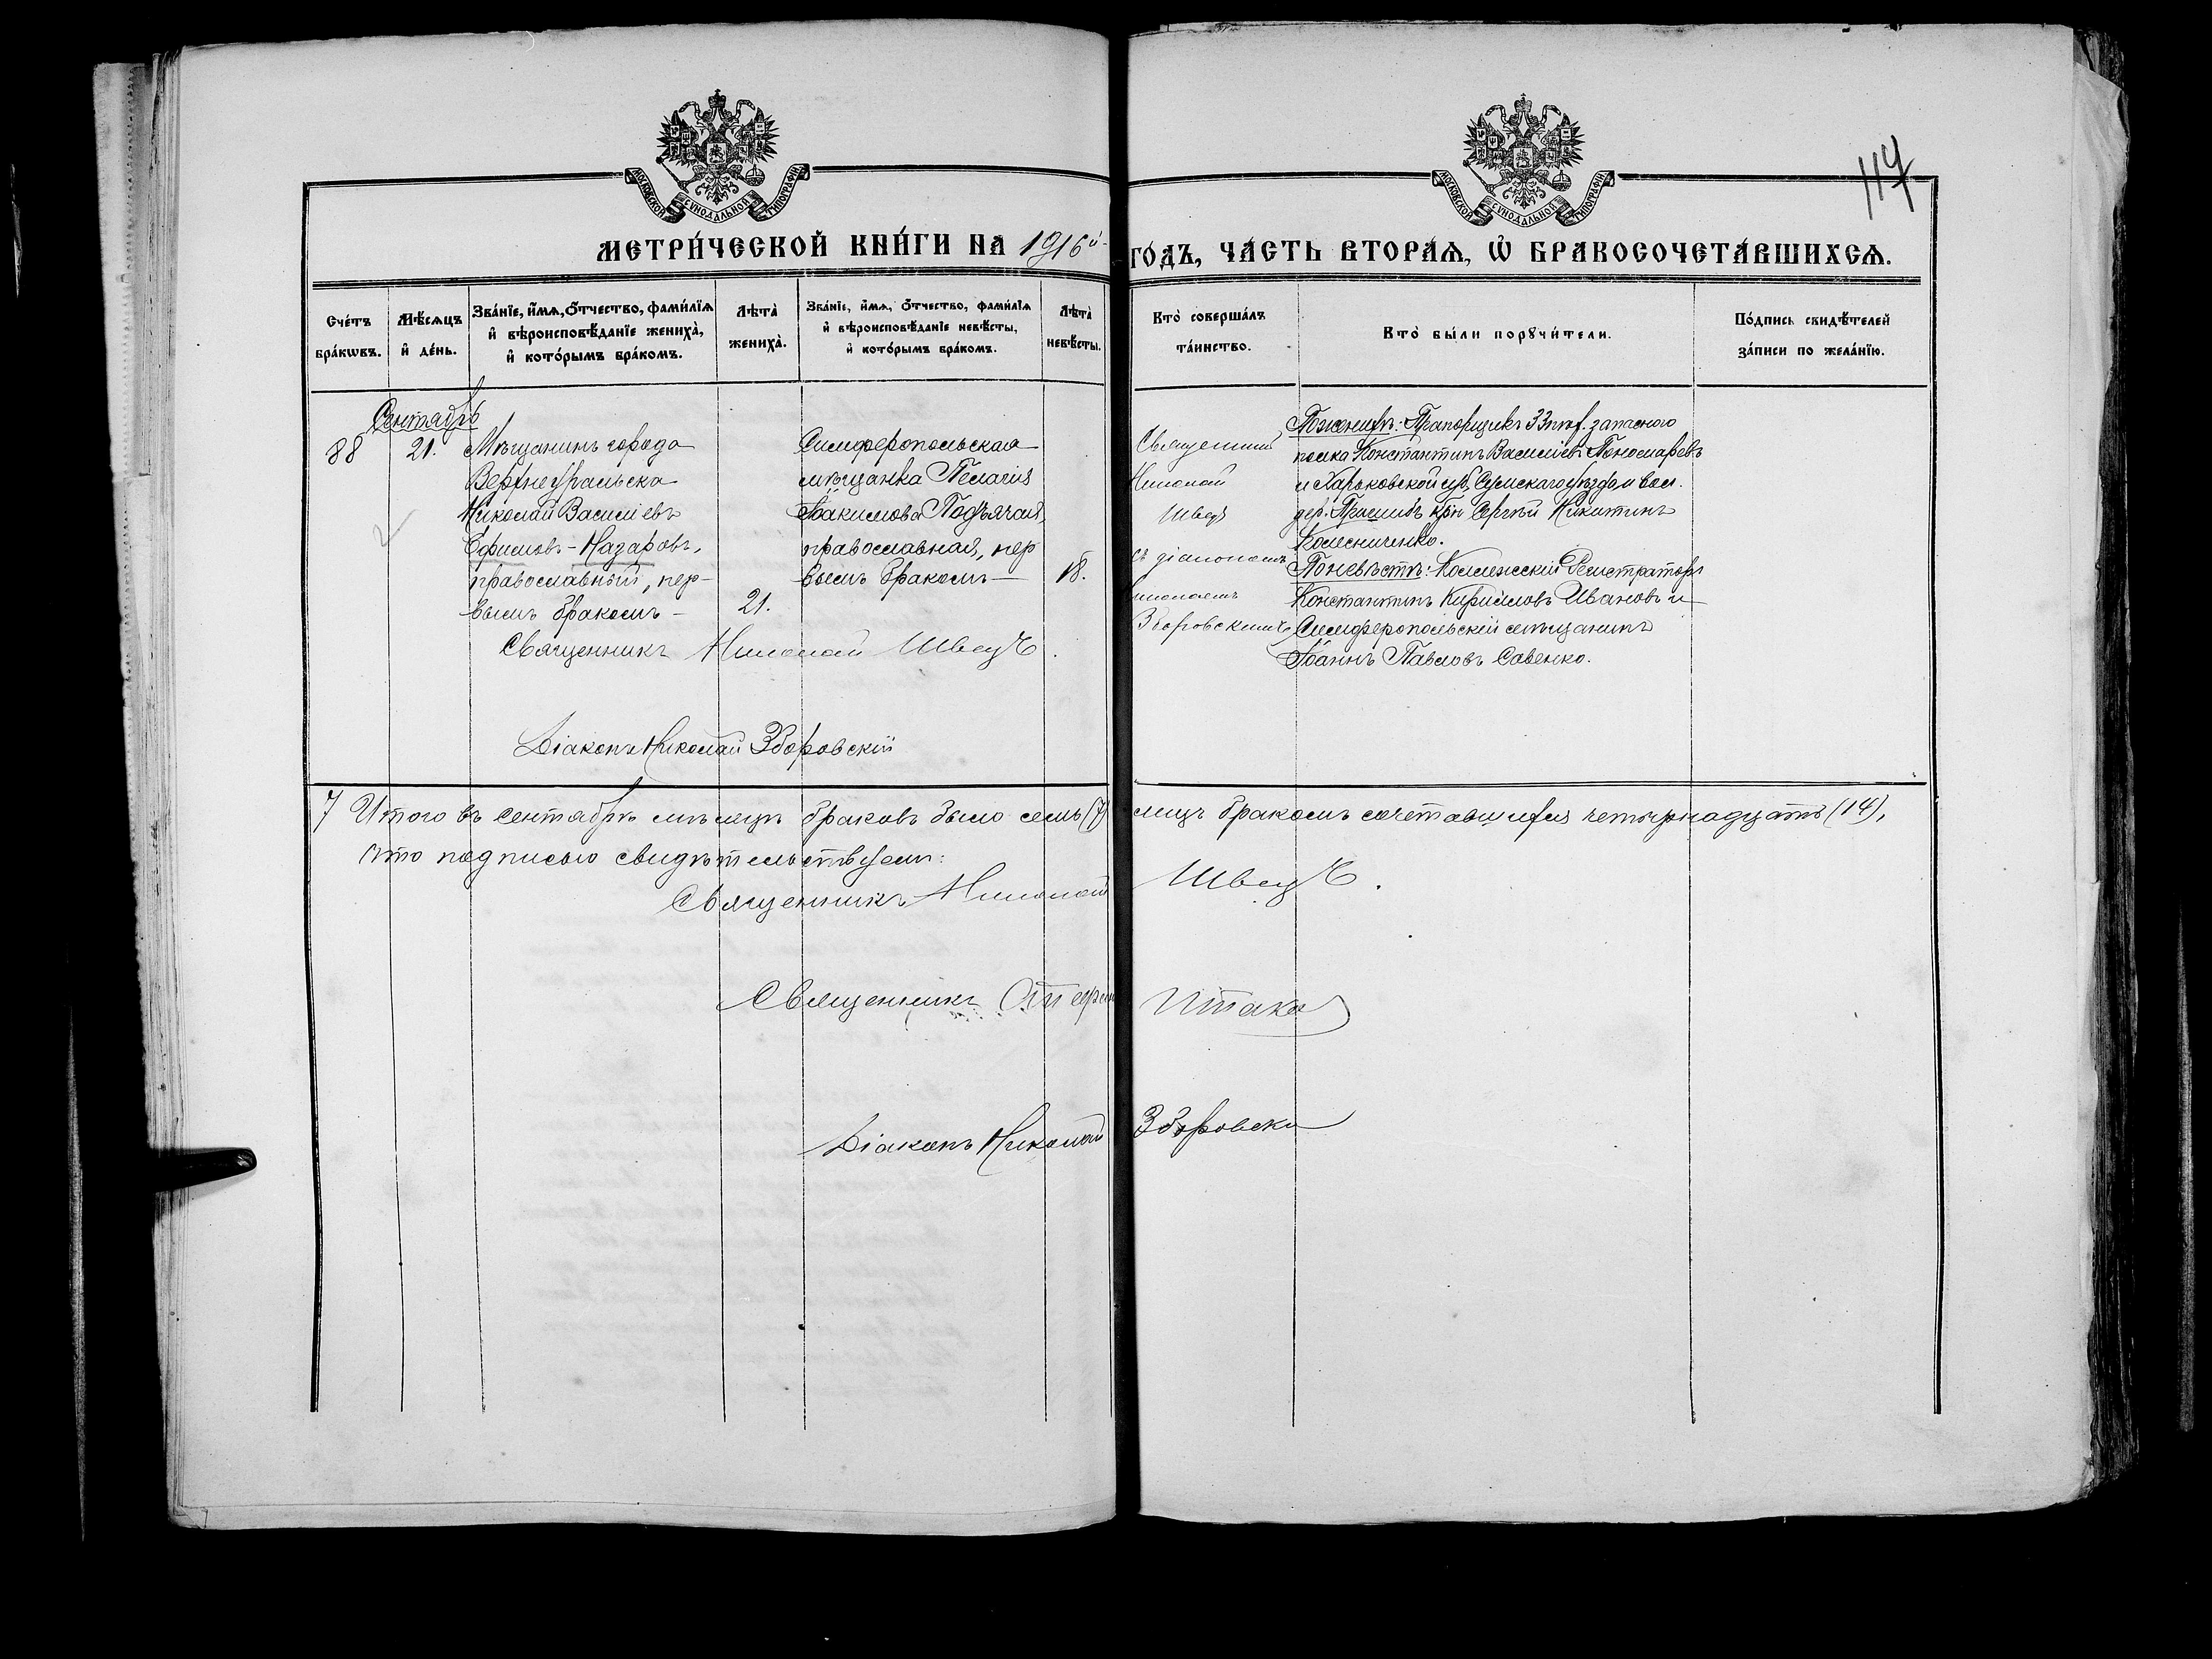 117
МОСКОВСКОЙ СѴНОДАЛЬНОЙ ТИПОГРАФІИ
МОСКОВСКОЙ СѴНОДАЛЬНОЙ ТИПОГРАФІИ
МЕТРИ́ЧЕСКОЙ КНИ́ГИ НА 1916й
ГО́ДЪ, ЧА́СТЬ ВТОРА́Ѧ, Ѽ БРАКОСОЧЕТА́ВШИХСѦ.
Сче́тъ бра́кѡвъ.
Мѣ́сѧцъ и҆ де́нь.
Зва́нїе, и҆́мѧ, ѻ҆́тчество, фами́лїѧ и҆ вѣроисповѣ́данїе жениха̀, и҆ кото́рымъ бра́комъ.
Лѣта̀ жениха̀.
Зва́нїе, и҆́мѧ, ѻ҆́тчество, фами́лїѧ и҆ вѣроисповѣ́данїе невѣ́сты, и҆ кото́рымъ бра́комъ.
Лѣта̀ невѣ́сты.
Кто̀ соверша́лъ та́инство.
Кто̀ бы́ли порꙋчи́тели.
По́дпись свидѣ́телей за́писи по жела́нїю.
Сентябрь
88
21.
Мѣщанинъ города
Верхнеуральска
Николай Василіевъ
Ефимовъ-Назаровъ,
православный, пер-
вымъ бракомъ –
21.
Симферопольская
мѣщанка Пелагія
Іоакимова Подъячая,
православная, пер
вымъ бракомъ –
18.
Священникъ
Николай
Швецъ
съ діакономъ
Николаемъ
Зборовскимъ
По женихѣ: Прапорщикъ 33 пѣх. запаснаго
полка Константинъ Василіевъ Пономаревъ
и Харьковской губ, Сумскаго уѣзда и вол.
дер. кр-нъ Сергѣй Никитинъ
Колесниченко.
По невѣстѣ: Коллежскій Регистраторъ
Константинъ Кирилловъ Ивановъ и
Симферопольскій мѣщанинъ
Іоаннъ Павловъ Савенко.
Священникъ Николай Швецъ.
Діаконъ Николай Зборовскій
7 Итого въ сентябрѣ мѣсяцѣ браковъ было семь (7) лицъ бракомъ сочетавшихся четырнадцать (14),
что подписью свидѣтельствуемъ:
Священникъ Николай Швецъ.
Священникъ
Діаконъ Николай Зборовскій